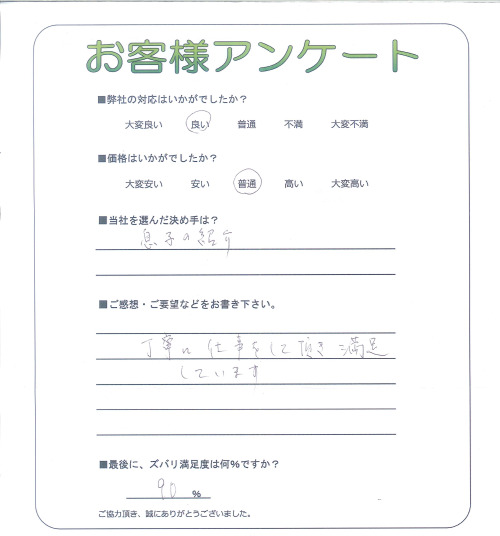 お客様アンケート
■弊社の対応はいかがでしたか？
大変良い 良い 普通 不満 大変不満
■価格はいかがでしたか？
大変安い 安い 普通 高い 大変高い
■当社を選んだ決め手は？
息子の紹介
■ご感想・ご要望などをお書き下さい。
丁寧に仕事をして頂き満足
しています
■最後に、ズバリ満足度は何%ですか？
90 %
ご協力頂き、誠にありがとうございました。